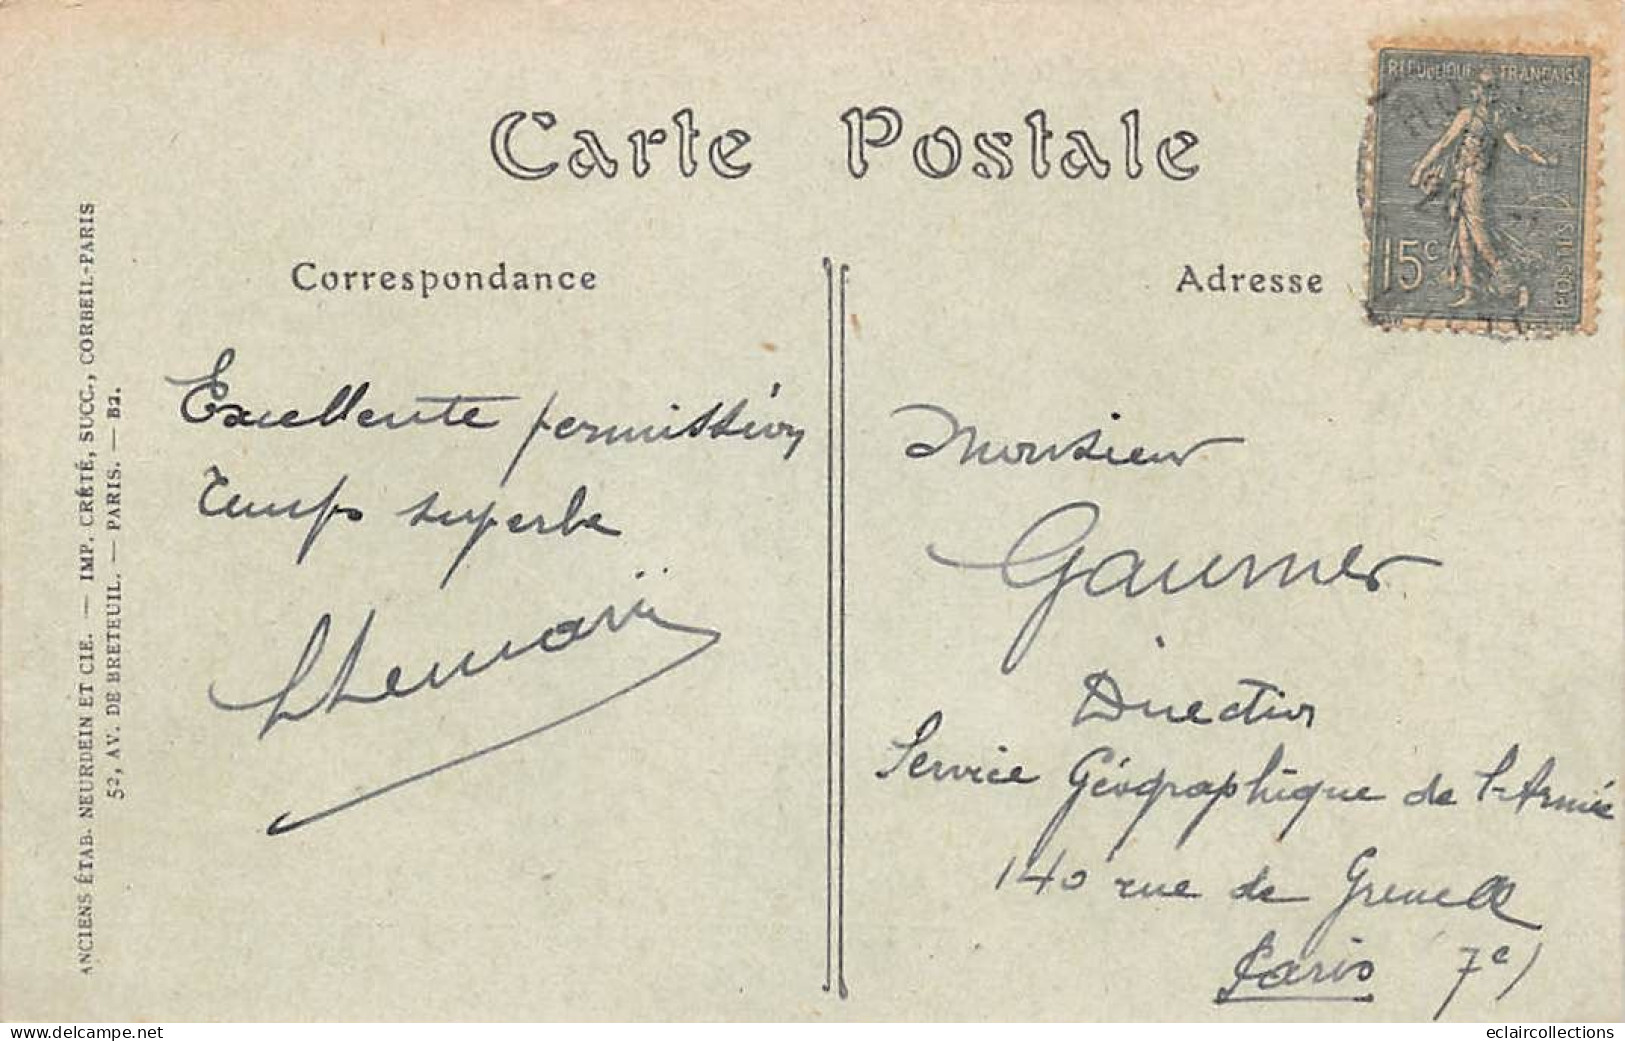 Carte Postale
RÉPUBLIQUE FRANÇAISE
15c
POSTES
Correspondance
Adresse
Excellente permission
Temps superbe
Monsieur
Gaumer
Directeur
Service Géographique de l'Armée
140 rue de Grenelle
Paris 7e)
ANCIENS ÉTAB. NEURDEIN ET CIE. — IMP. CRÉTÉ, SUCC., CORBEIL-PARIS
52, AV. DE BRETEUIL. — PARIS. — B2.
eclaircollections